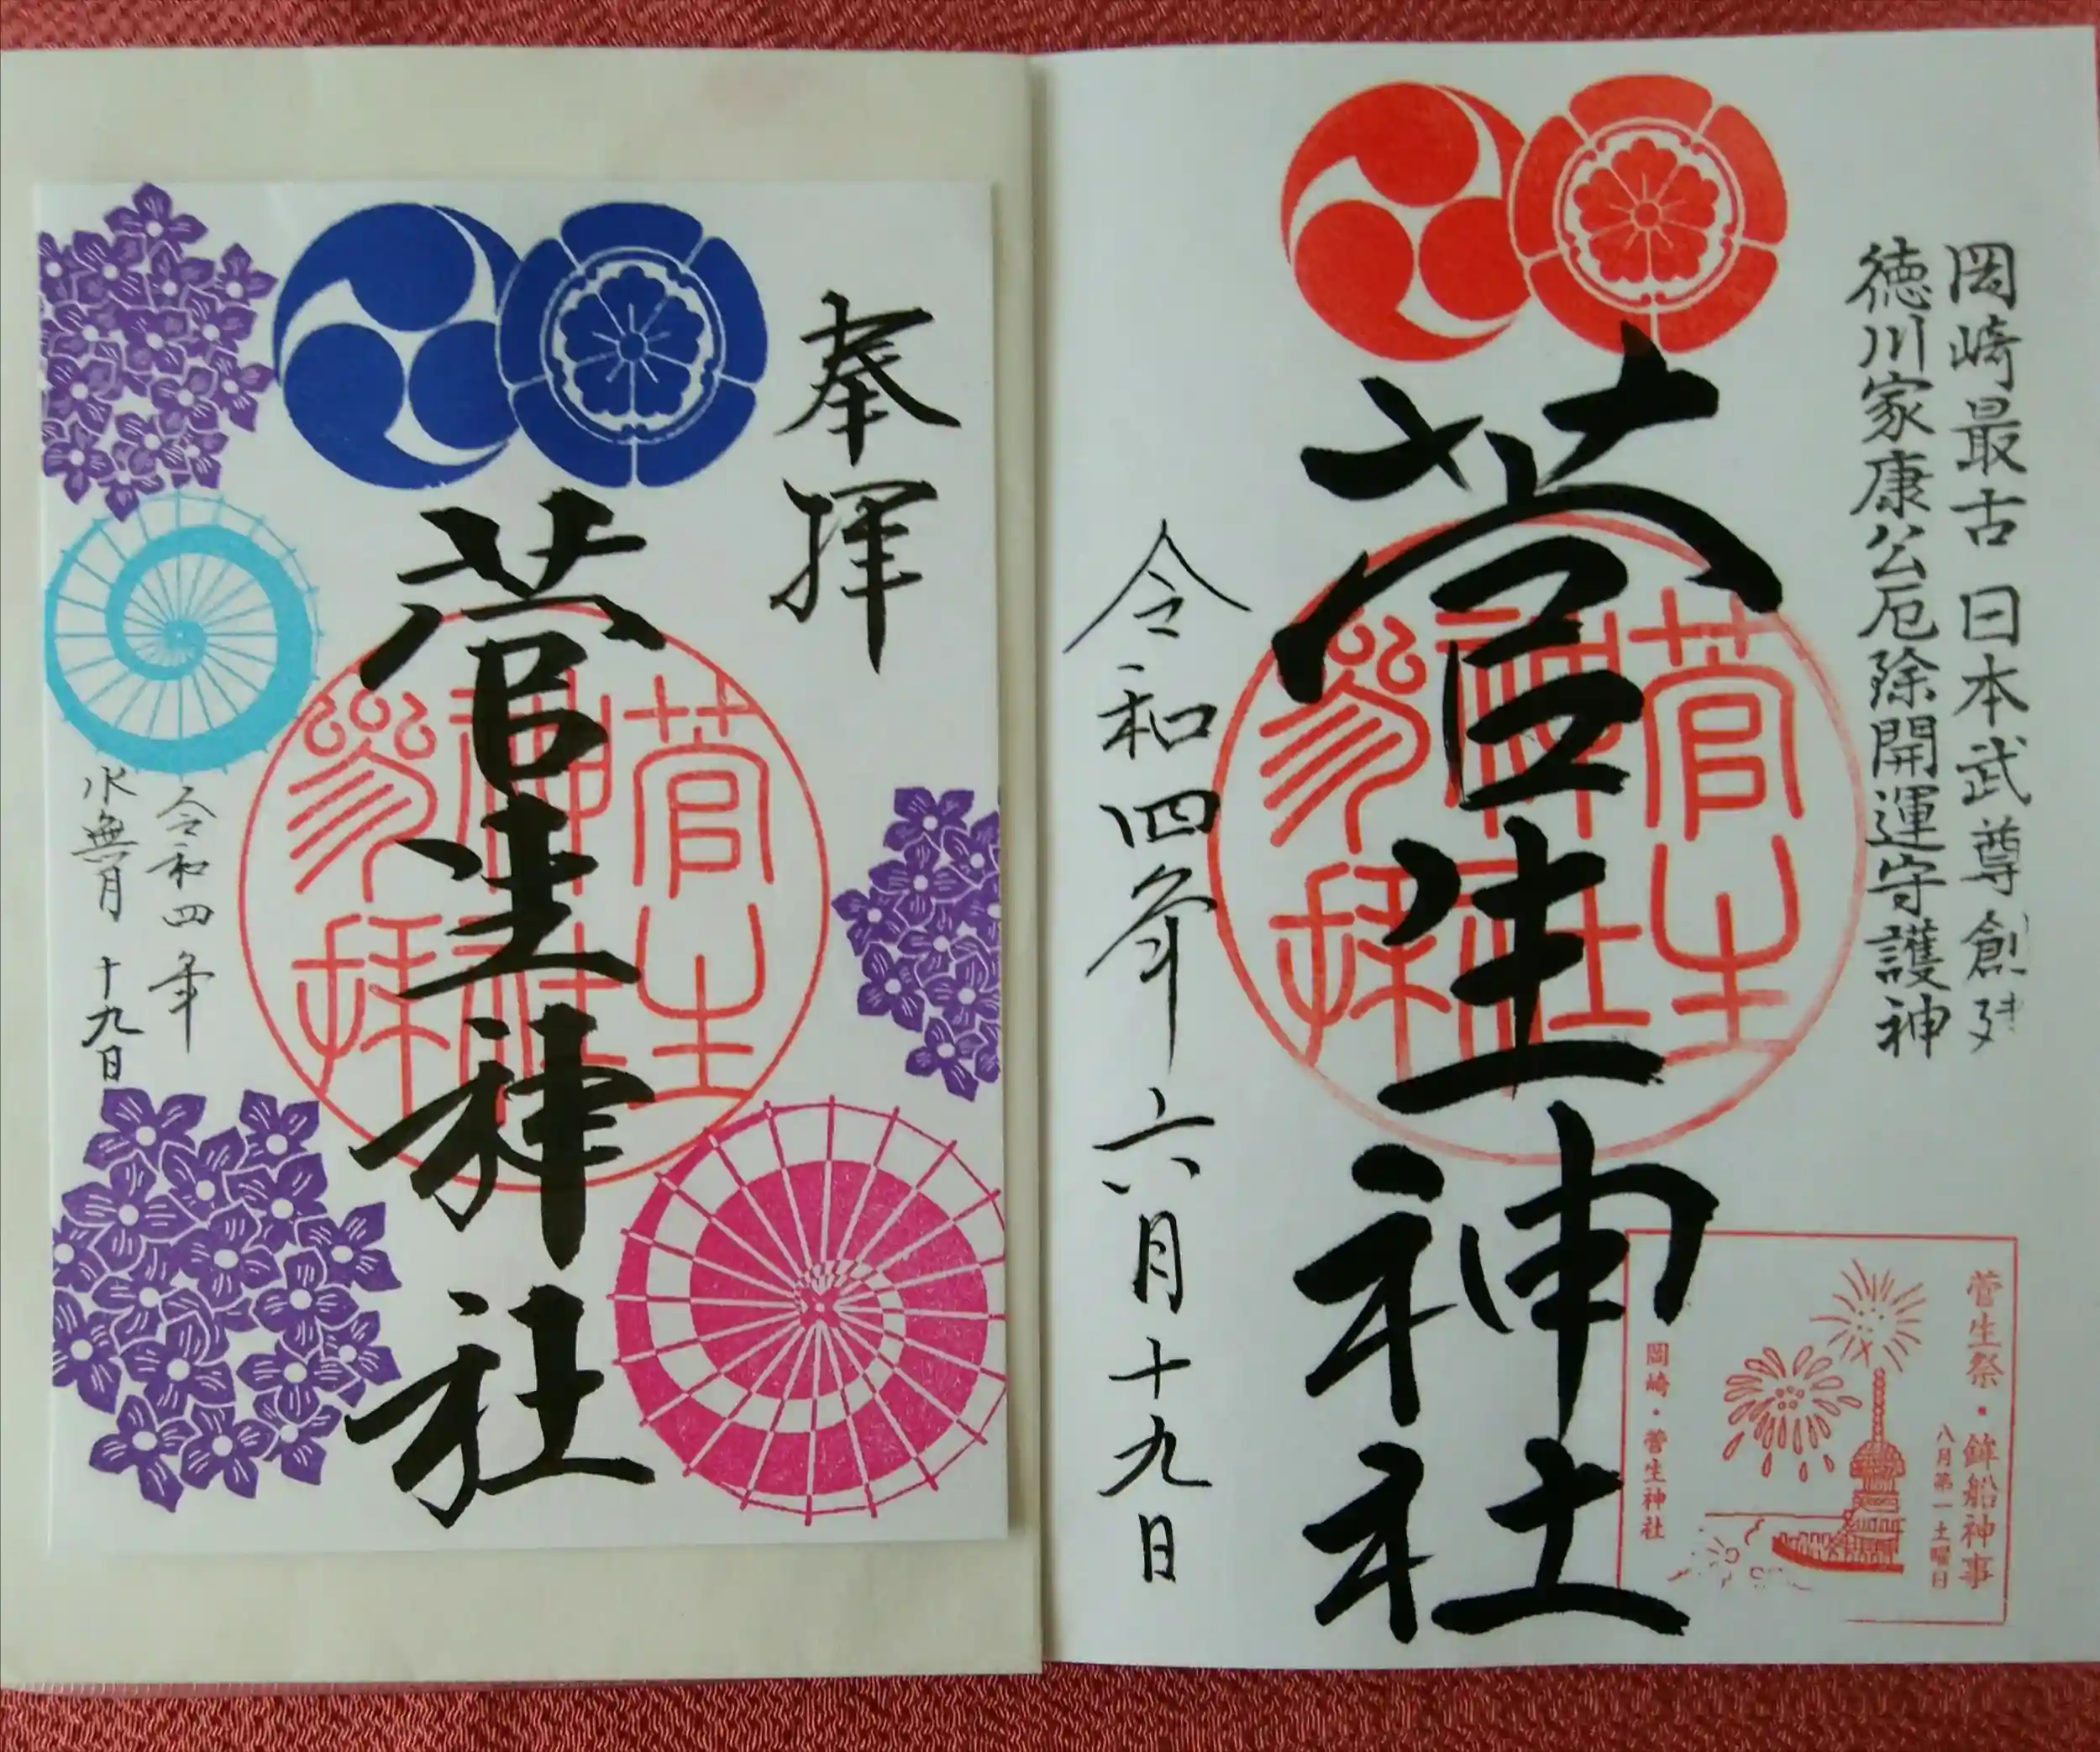 岡崎最古 日本武尊創建
徳川家康公厄除開運守護神
菅生神社
菅生
神社
参拝
令和四年六月十九日
菅生祭・鉾船神事
八月第一土曜日
岡崎・菅生神社
奉拝
菅生神社
菅生
神社
参拝
令和四年
水無月 十九日